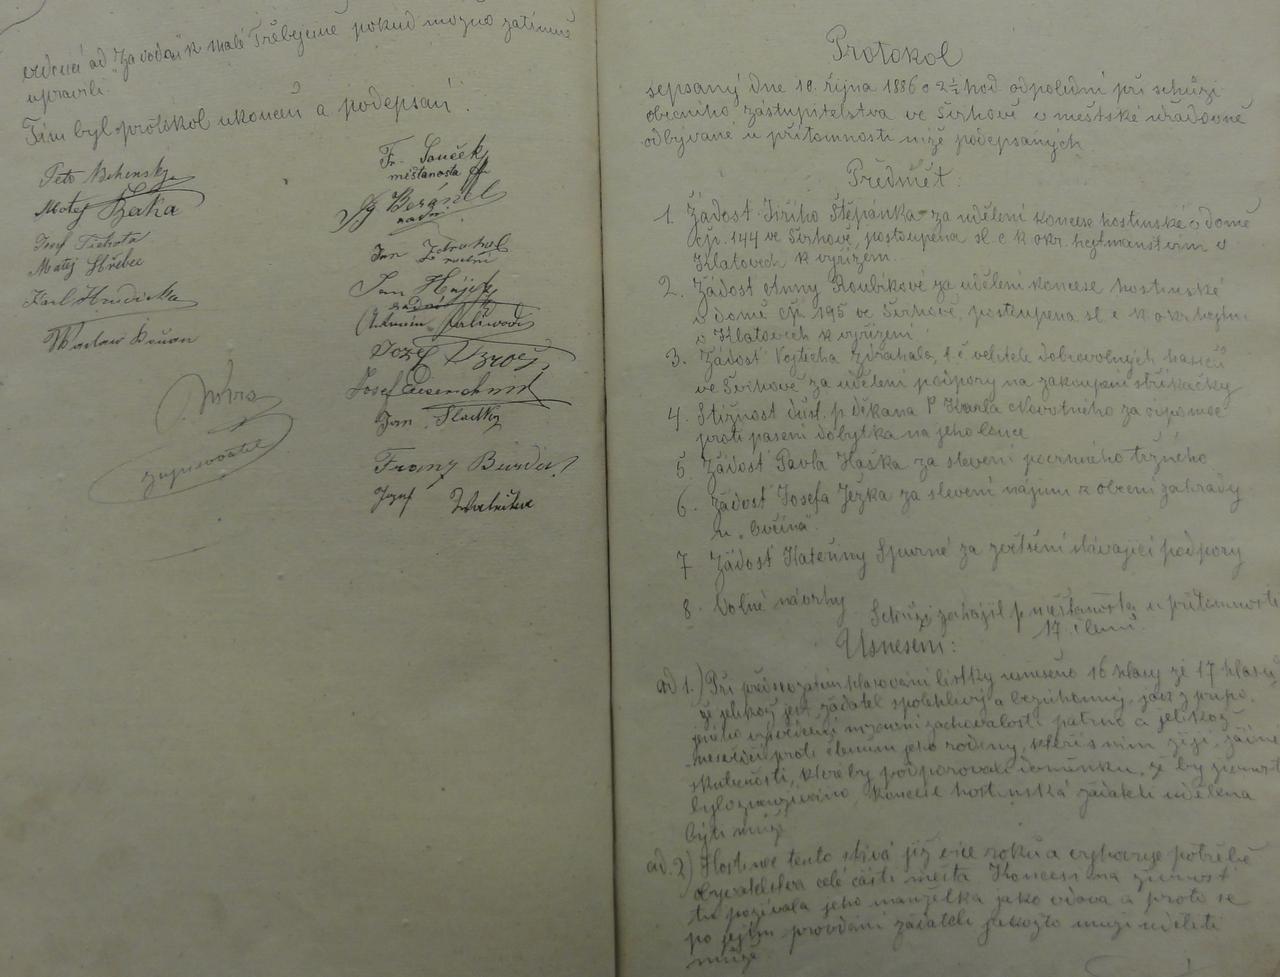 vedoucí od "Za vodou" k Malé Třebýcině pokud možno zatímně
upravili."
Tím byl protokol ukončen a podepsán.
Petr Behensky
Matej Žaka
Josef Tichota
Matěj Hřebec
Karl Hrudicka
Waclaw Kouan
zapisovatel
Fr. Souček
měšťanosta
radní
Jan Zdrahal
radní
Jan Hájek
radní
Antonín
Josef
Josef Eisenschmid
Jan Sladky
Franz Burda
Jozef
Protokol
sepsaný dne 18. října 1886 o 2½ hod. odpoledni při schůzi
obecního zastupitelstva ve Švihově v městské úřadovně
odbývané u přítomnosti níže podepsaných.
Předmět:
1. Žádost Jiřího Štěpánka za udělení koncese hostinské v domě
čp. 144 ve Švihově, postoupená sl. c. k. okr. hejtmanstvím v
Klatovech k vyřízení.
2. Žádost Anny Roubíkové za udělení koncese hostinské
v domě čp. 195 ve Švihově, postoupena sl. c. k. okr. hejtm.
v Klatovech k vyřízení
3. Žádost Vojtěcha Zdrahala, t. č. velitele dobrovolných hasičů
ve Švihově za udělení podpory na zakoupení stříkačky
4. Stížnost důst. p. děkana P. Karla Novotného za výpomoc
proti pasení dobytka na jeho louce
5. Žádost Pavla Haška za slevení tržného
6. Žádost Josefa Ježka za slevení nájmu z obecní zahrady
u "Ovčína".
7 Žádost Kateřiny Spurné za zvětšení stávající podpory
8. Volné návrhy
Schůzi zahájil p. měšťanosta u přítomnosti
17 členů.
Usnesení:
ad 1.) Při předsevzatém hlasování lístky usneseno 16 hlasy ze 17 hlasů
že jelikož jest žadatel spolehlivý a bezúhonný, jakž z připo-
jeného vysvědčení mravní zachovalosti patrno a jelikož
nesvědčí proti členům jeho rodiny, kteří s ním žijí, žádné
skutečnosti, které by podporovali domněnku, že by živnosti
bylo zneužíváno, koncese hostinská žadateli udělena
býti může
ad. 2) Hostinec tento stává již více roků a vyhovuje potřebě
obyvatelstva celé části města. Koncesi na živnost
tu požívala jeho manželka jako vdova a proto se
po jejím provdání žadateli jakožto muži uděliti
může.